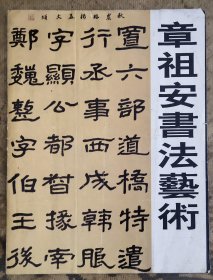 章祖安書法藝術
置六部道橋特遣
行丞事西成韓朖
字顯公都督掾南
鄭魏整字伯王後